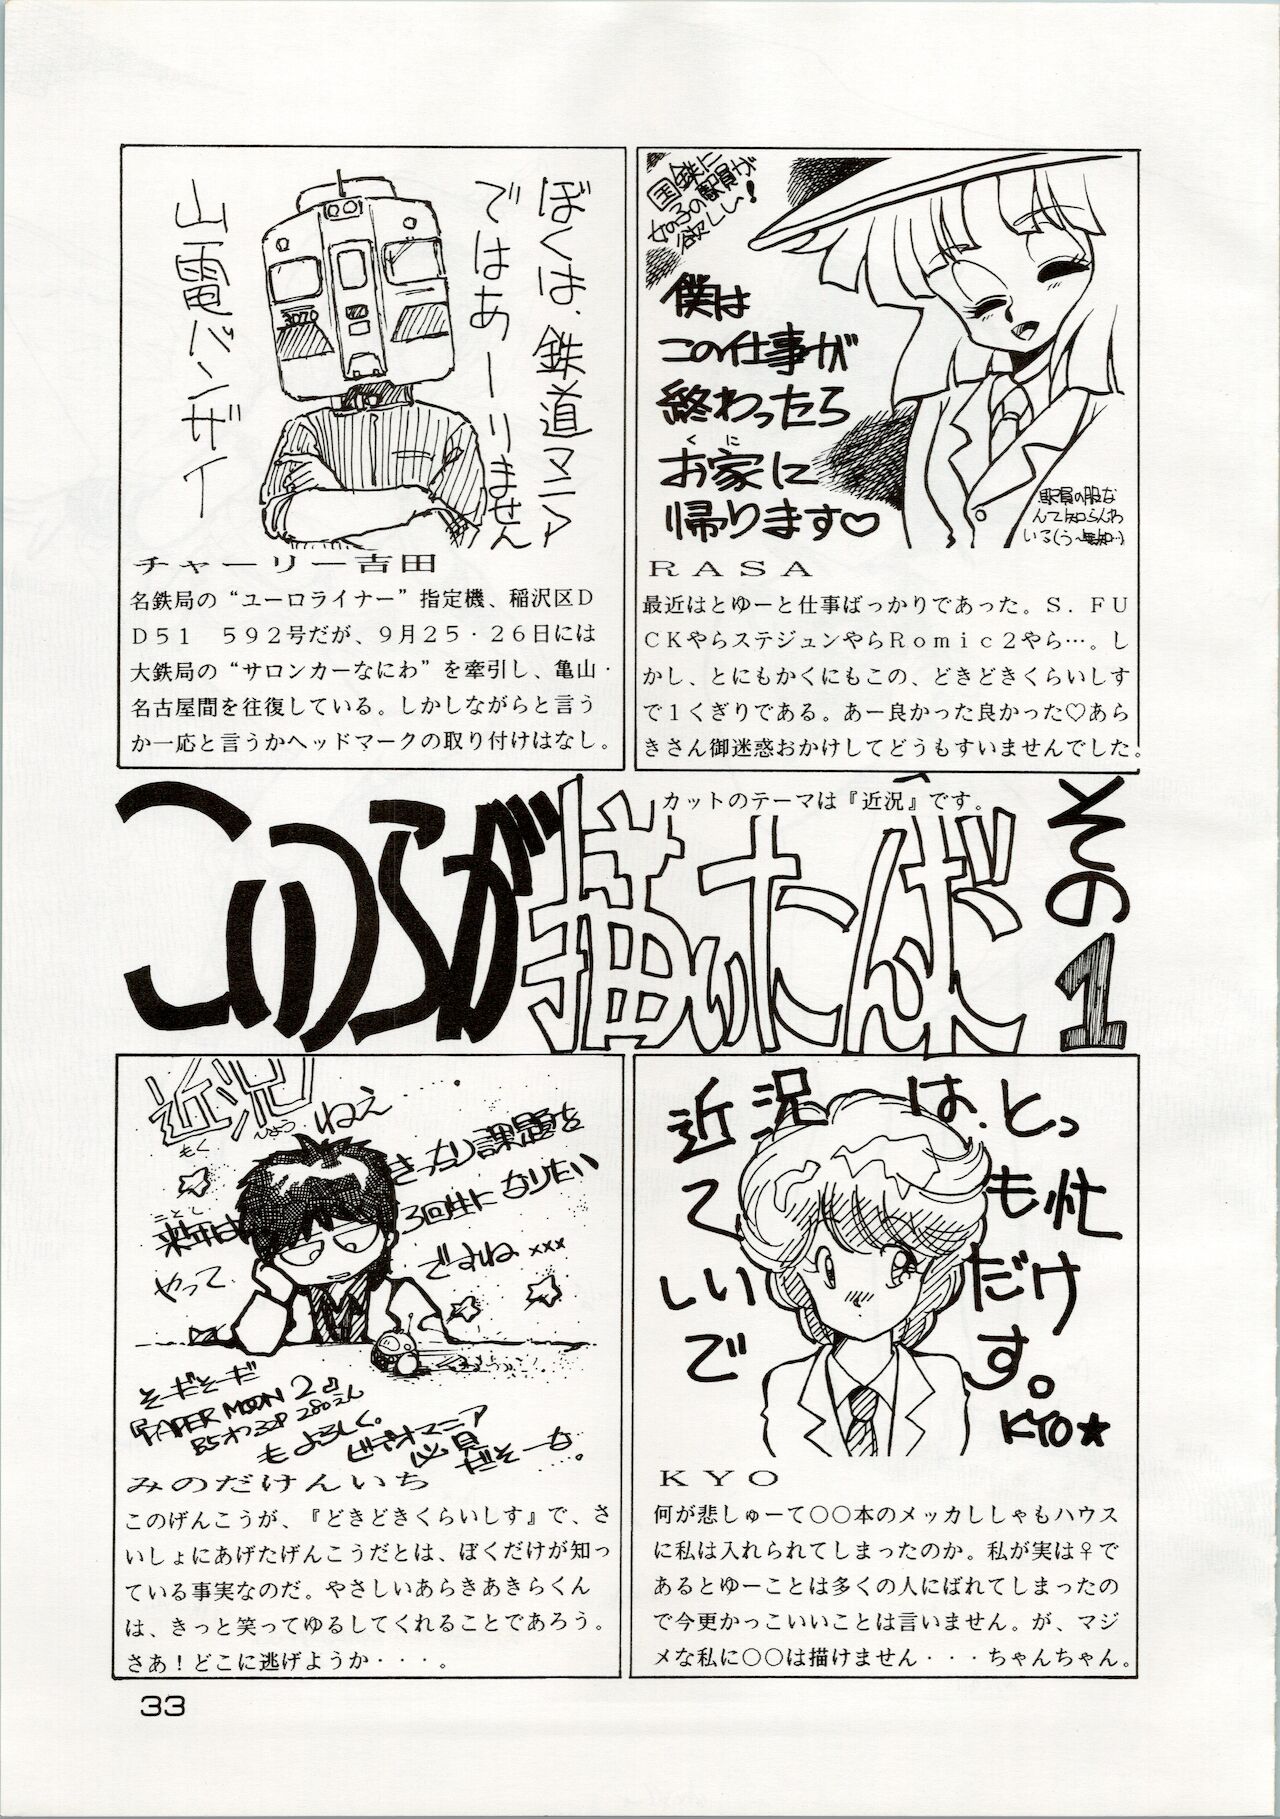 ぼくは、鉄道マニア
ではあーりません
山電バンザイ
3070
チャーリー吉田
名鉄局の“ユーロライナー”指定機、稲沢区D
D51　592号だが、9月25・26日には
大鉄局の“サロンカーなにわ”を牽引し、亀山・
名古屋間を往復している。しかしながらと言う
か一応と言うかヘッドマークの取り付けはなし。
国鉄に
女の子の駅員が
欲しい!
僕は
この仕事が
終わったら
お家に
くに
帰ります♡
駅員の服な
んて知らんわ
いる(う〜無知…)
RASA
最近はとゆーと仕事ばっかりであった。S. FU
CKやらステジュンやらRomic2やら…。し
かし、とにもかくにもこの、どきどきくらいしす
で1くぎりである。あー良かった良かった♡あら
きさん御迷惑おかけしてどうもすいませんでした。
カットのテーマは『近況』です。
このらが描いたんだ
その1
近況
もくひょう
ねえ
ことし
来年は
きっちり課題を
やって
3回生になりたい
ですね…×××
そーだそーだ
『PAPER MOON 2』
B5オフ32P 280えん
もよろしく。
ビデオマニア
必見
だそーな。
みのだけんいち
このげんこうが、『どきどきくらいしす』で、さ
いしょにあげたげんこうだとは、ぼくだけが知っ
ている事実なのだ。やさしいあらきあきらくん
は、きっと笑ってゆるしてくれることであろう。
さあ!どこに逃げようか・・・。
近況は、とっ
ても忙
しいだけ
です。
KYO★
KYO
何が悲しゅーて〇〇本のメッカししゃもハウス
に私は入れられてしまったのか。私が実は♀で
あるとゆーことは多くの人にばれてしまったの
で今更かっこいいことは言いません。が、マジ
メな私に〇〇は描けません・・・ちゃんちゃん。
33